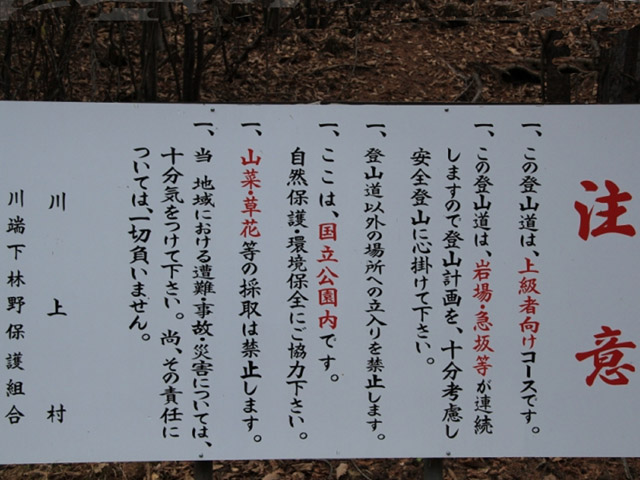 注意
一、この登山道は、上級者向けコースです。
一、この登山道は、岩場・急坂等が連続
しますので登山計画を、十分考慮し
安全登山に心掛けて下さい。
一、登山道以外の場所への立入りを禁止します。
一、ここは、国立公園内です。
自然保護・環境保全にご協力下さい。
一、山菜・草花等の採取は禁止します。
一、当地域における遭難・事故・災害については、
十分気をつけて下さい。尚、その責任に
ついては、一切負いません。
川上村
川端下林野保護組合